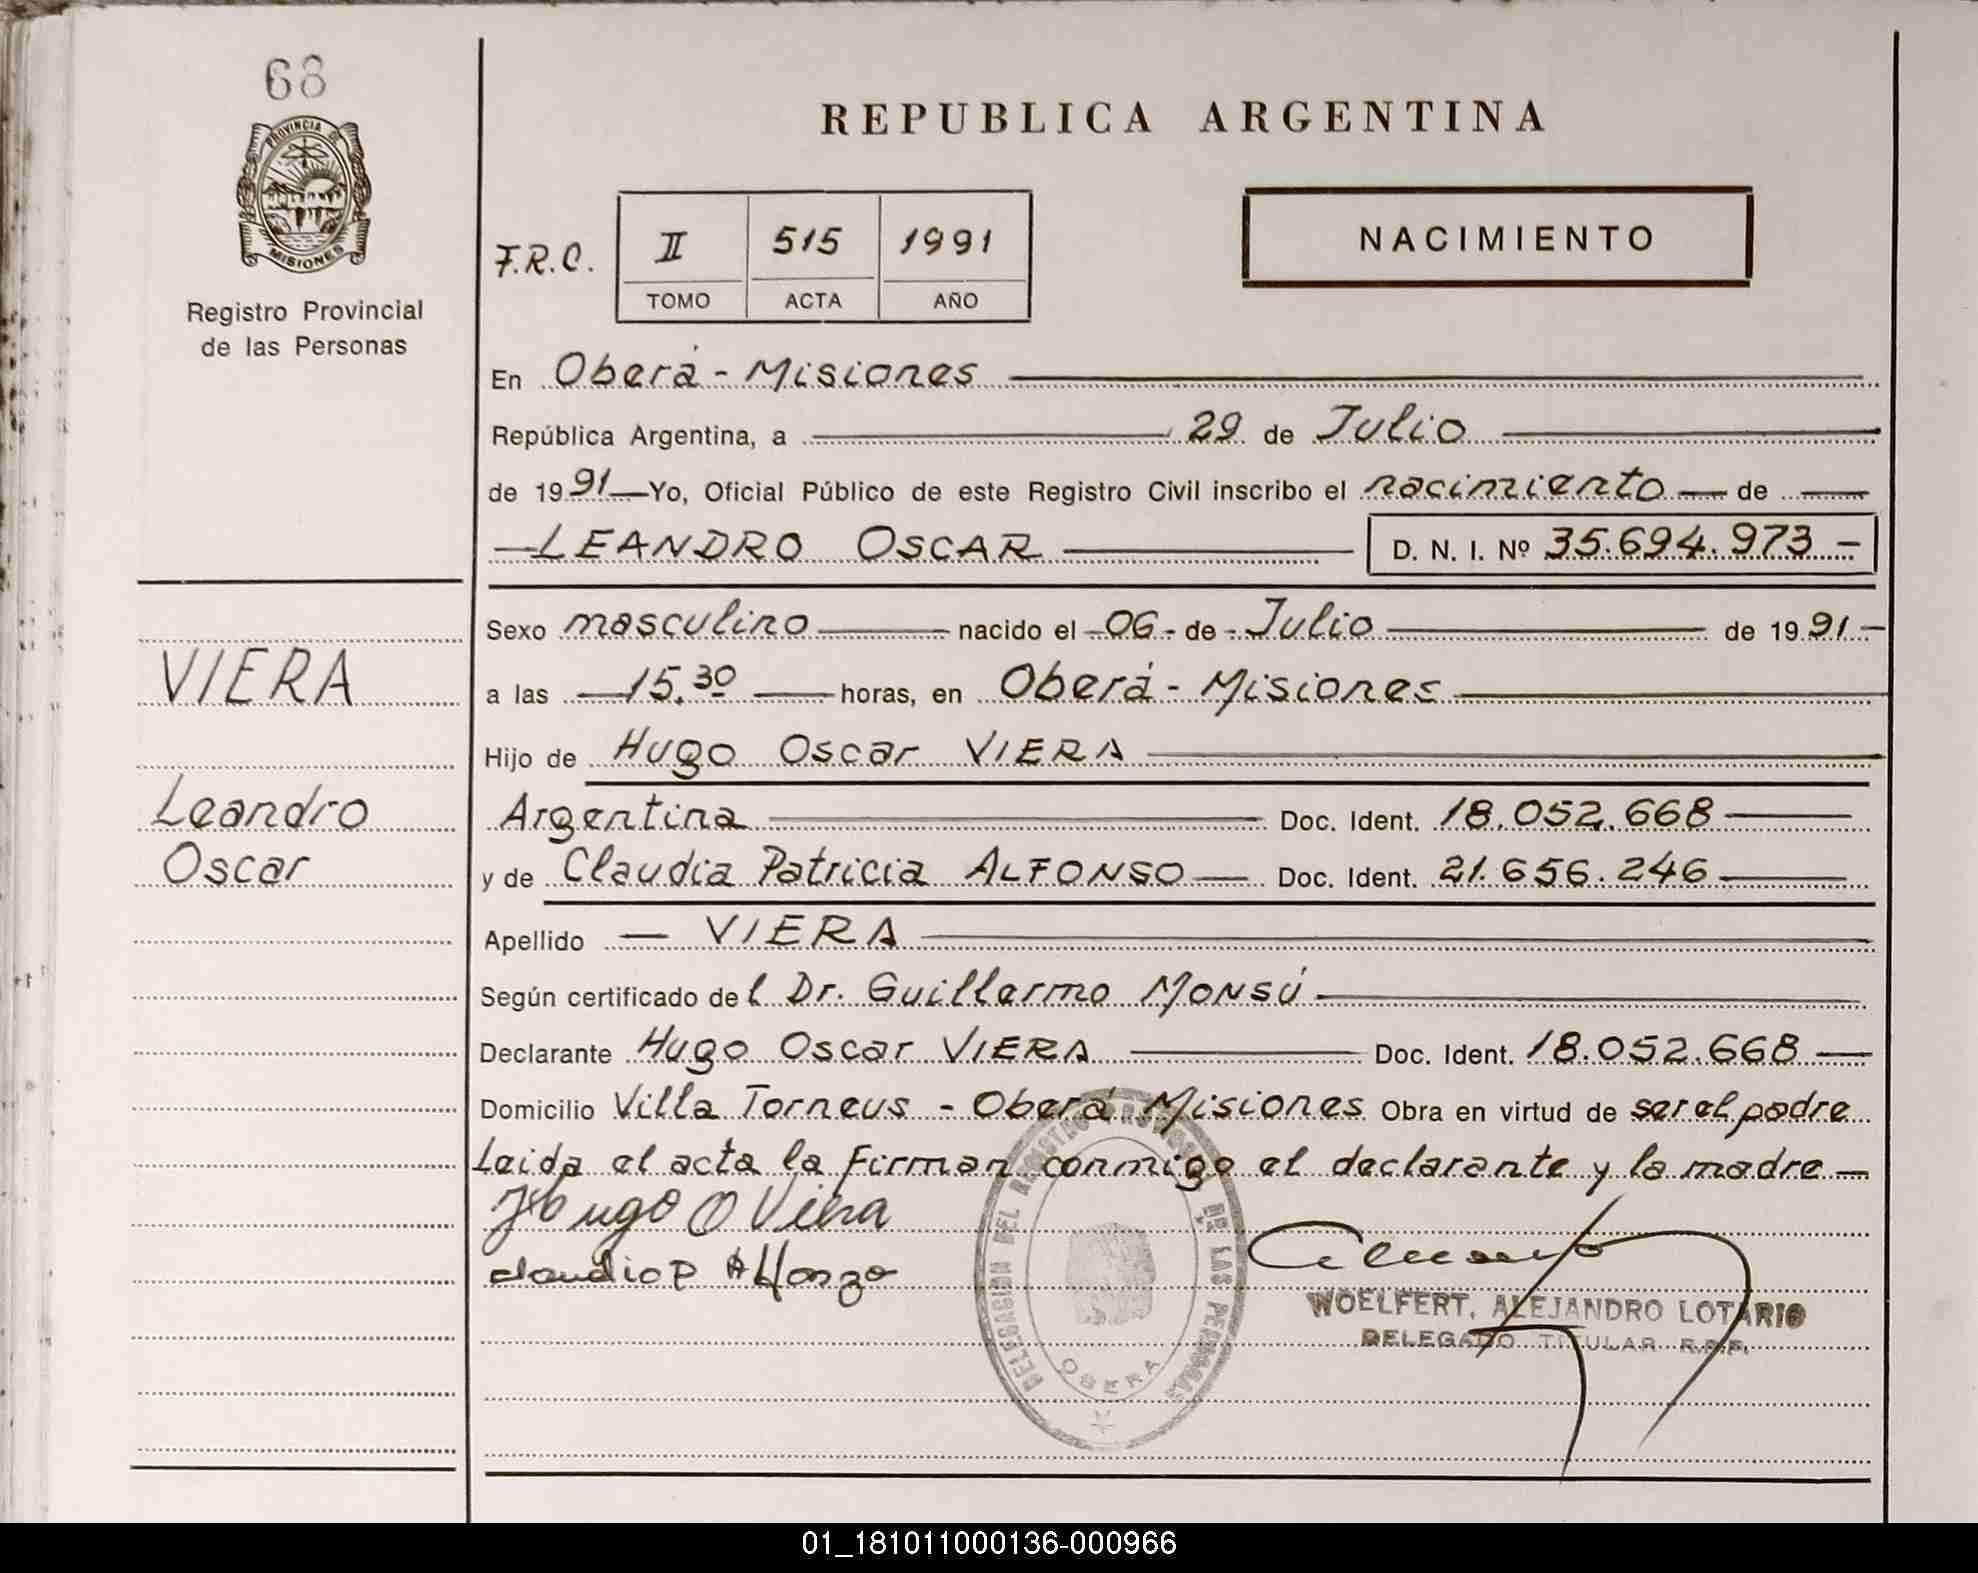 68
PROVINCIA DE
MISIONES
Registro Provincial
de las Personas
VIERA
Leandro
Oscar
REPUBLICA ARGENTINA
F.R.C.
II 515 1991
TOMO ACTA AÑO
NACIMIENTO
En Oberá - Misiones
República Argentina, a 29 de Julio
de 1991 Yo, Oficial Público de este Registro Civil inscribo el nacimiento de
LEANDRO OSCAR D. N. I. Nº 35.694.973 -
Sexo masculino nacido el 06 - de - Julio de 1991 -
a las 15,30 horas, en Oberá - Misiones
Hijo de Hugo Oscar VIERA
Argentina Doc. Ident. 18.052.668
y de Claudia Patricia ALFONSO Doc. Ident. 21.656.246
Apellido VIERA
Según certificado del Dr. Guillermo Monsú
Declarante Hugo Oscar VIERA Doc. Ident. 18.052.668
Domicilio Villa Torneus - Oberá Misiones Obra en virtud de ser el padre
Leida el acta la Firman conmigo el declarante y la madre
Hugo O Viera
claudio P Alfonzo
DELEGACION DEL REGISTRO PROVINCIAL DE LAS PERSONAS
OBERA
WOELFERT, ALEJANDRO LOTARIO
DELEGADO TITULAR R.P.P.
01_181011000136-000966